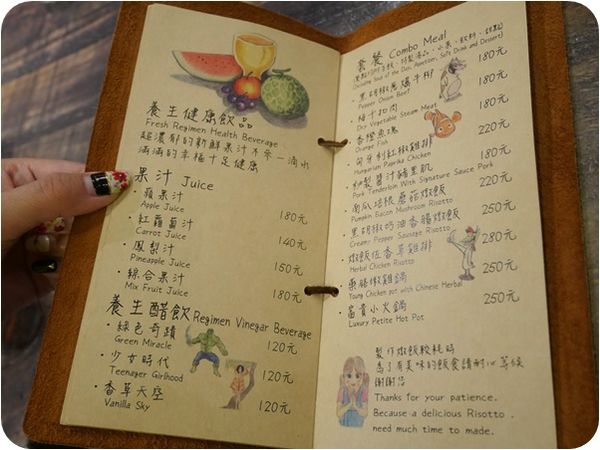 養生健康飲品
Fresh Regimen Health Beverage
超濃郁的新鮮果汁不來一滴水
滿滿的幸福十足健康
果汁 Juice
・蘋果汁 180元
Apple Juice
・紅蘿蔔汁 140元
Carrot Juice
・鳳梨汁 150元
Pineapple Juice
・綜合果汁 180元
Mix Fruit Juice
養生醋飲 Regimen Vinegar Beverage
・綠色奇蹟 120元
Green Miracle
・少女時代 120元
Teenager Girlhood
・香草天空 120元
Vanilla Sky
套餐 Combo Meal
(Including Soup of the Day, Appetizer, Soft Drink and Dessert)
・黑胡椒蔥爆牛柳 180元
Pepper Onion Beef
・梅干扣肉 180元
Dry Vegetable Steam Meat
・香橙魚塊 180元
Orange Fish
・匈牙利紅椒雞排 220元
Hungarian Paprika Chicken
・秘製醬汁豬里肌 180元
Pork Tenderloin With Signature Sauce Pork
・南瓜培根蘑菇燉飯 220元
Pumpkin Bacon Mushroom Risotto
・黑胡椒奶油香腸燉飯 250元
Creamy Pepper Sausage Risotto
・燉飯佐香草雞排 280元
Herbal Chicken Risotto
・栗子燉雞鍋 250元
Young Chicken pot with Chinese Herbal
・富貴小火鍋 250元
Luxury Petite Hot Pot
製作燉飯較耗時
為了有美味的飯食請耐心等候
謝謝您
Thanks for your patience.
Because a delicious Risotto .
need much time to made.